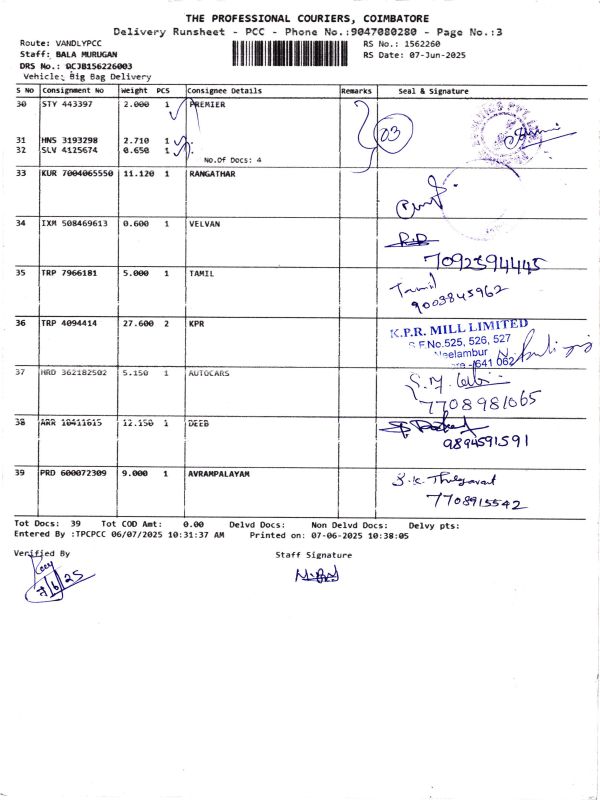 THE PROFESSIONAL COURIERS, COIMBATORE
Delivery Runsheet - PCC - Phone No.:9047080280 - Page No.:3
Route: VANDLYPCC
Staff: BALA MURUGAN
DRS No.: DCJB156226003
Vehicle: Big Bag Delivery
RS No.: 1562260
RS Date: 07-Jun-2025
S No Consignment No Weight PCS Consignee Details Remarks Seal & Signature
30 STY 443397 2.000 1 PREMIER
31 HNS 3193298 2.710 1
32 SLV 4125674 0.650 1
No.Of Docs: 4
03
33 KUR 7004065550 11.120 1 RANGATHAR
34 IXM 508469613 0.600 1 VELVAN
7092594445
35 TRP 7966181 5.000 1 TAMIL
Tamil
9003845962
36 TRP 4094414 27.600 2 KPR
K.P.R. MILL LIMITED
S.F.No.525, 526, 527
Neelambur
641 062
37 HRD 362182502 5.150 1 AUTOCARS
7708981065
38 ARR 10411615 12.150 1 DEEB
9894591591
39 PRD 600072309 9.000 1 AVRAMPALAYAM
7708915542
Tot Docs: 39 Tot COD Amt: 0.00 Delvd Docs: Non Delvd Docs: Delvy pts:
Entered By :TPCPCC 06/07/2025 10:31:37 AM Printed on: 07-06-2025 10:38:05
Verified By Staff Signature
7/6/25